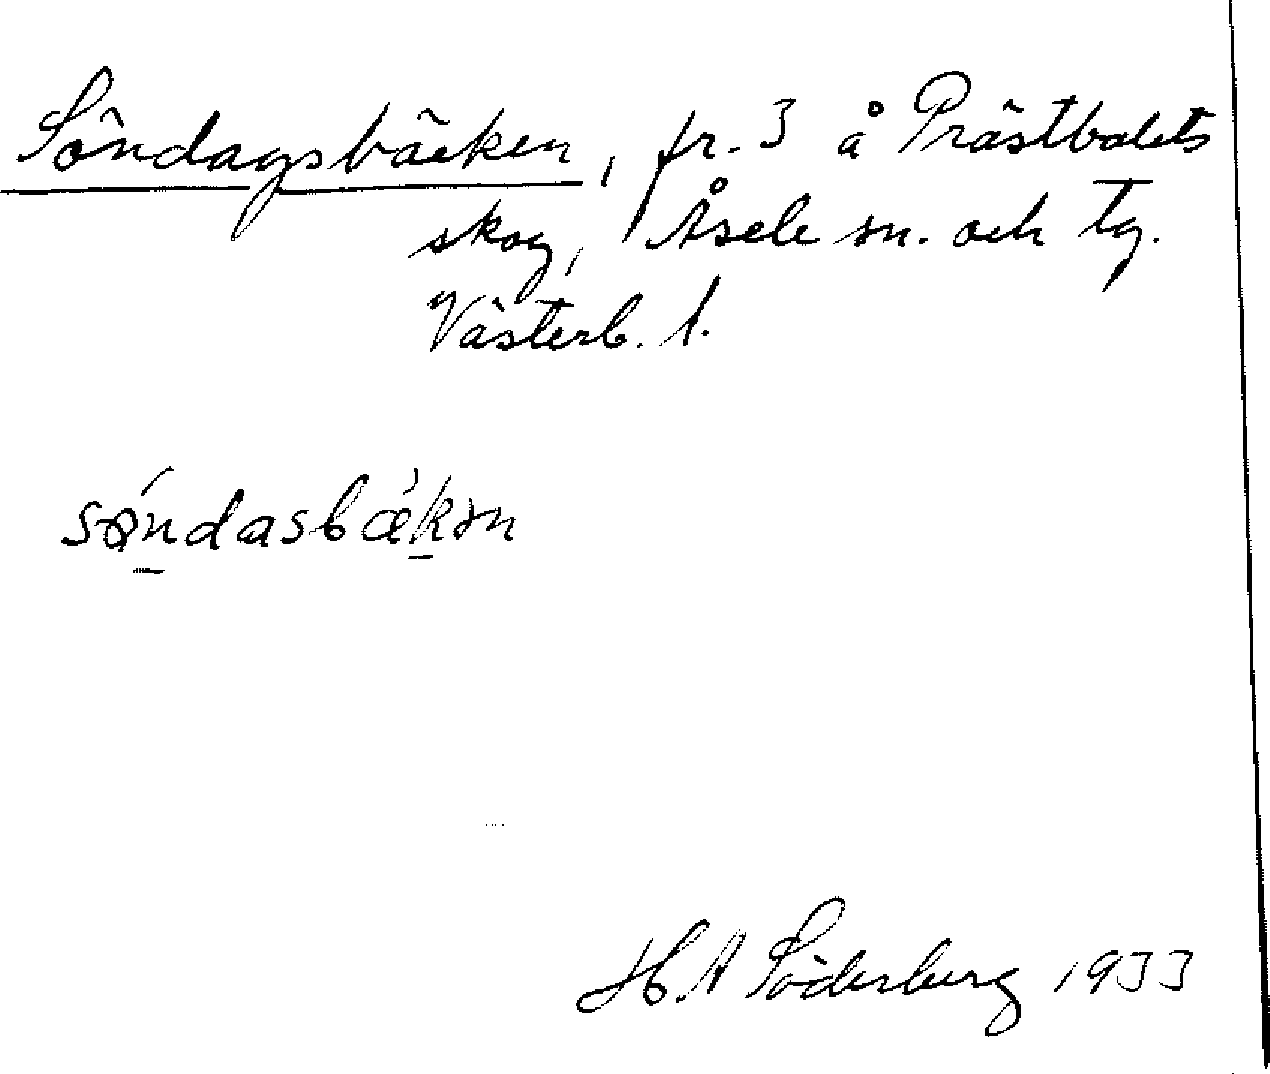 Söndagsbäcken, fr. 3 å Prästbolets
skog, Åsele sn. och tg.
Västerb. l.
søndasbækən
H. A Söderberg 1933